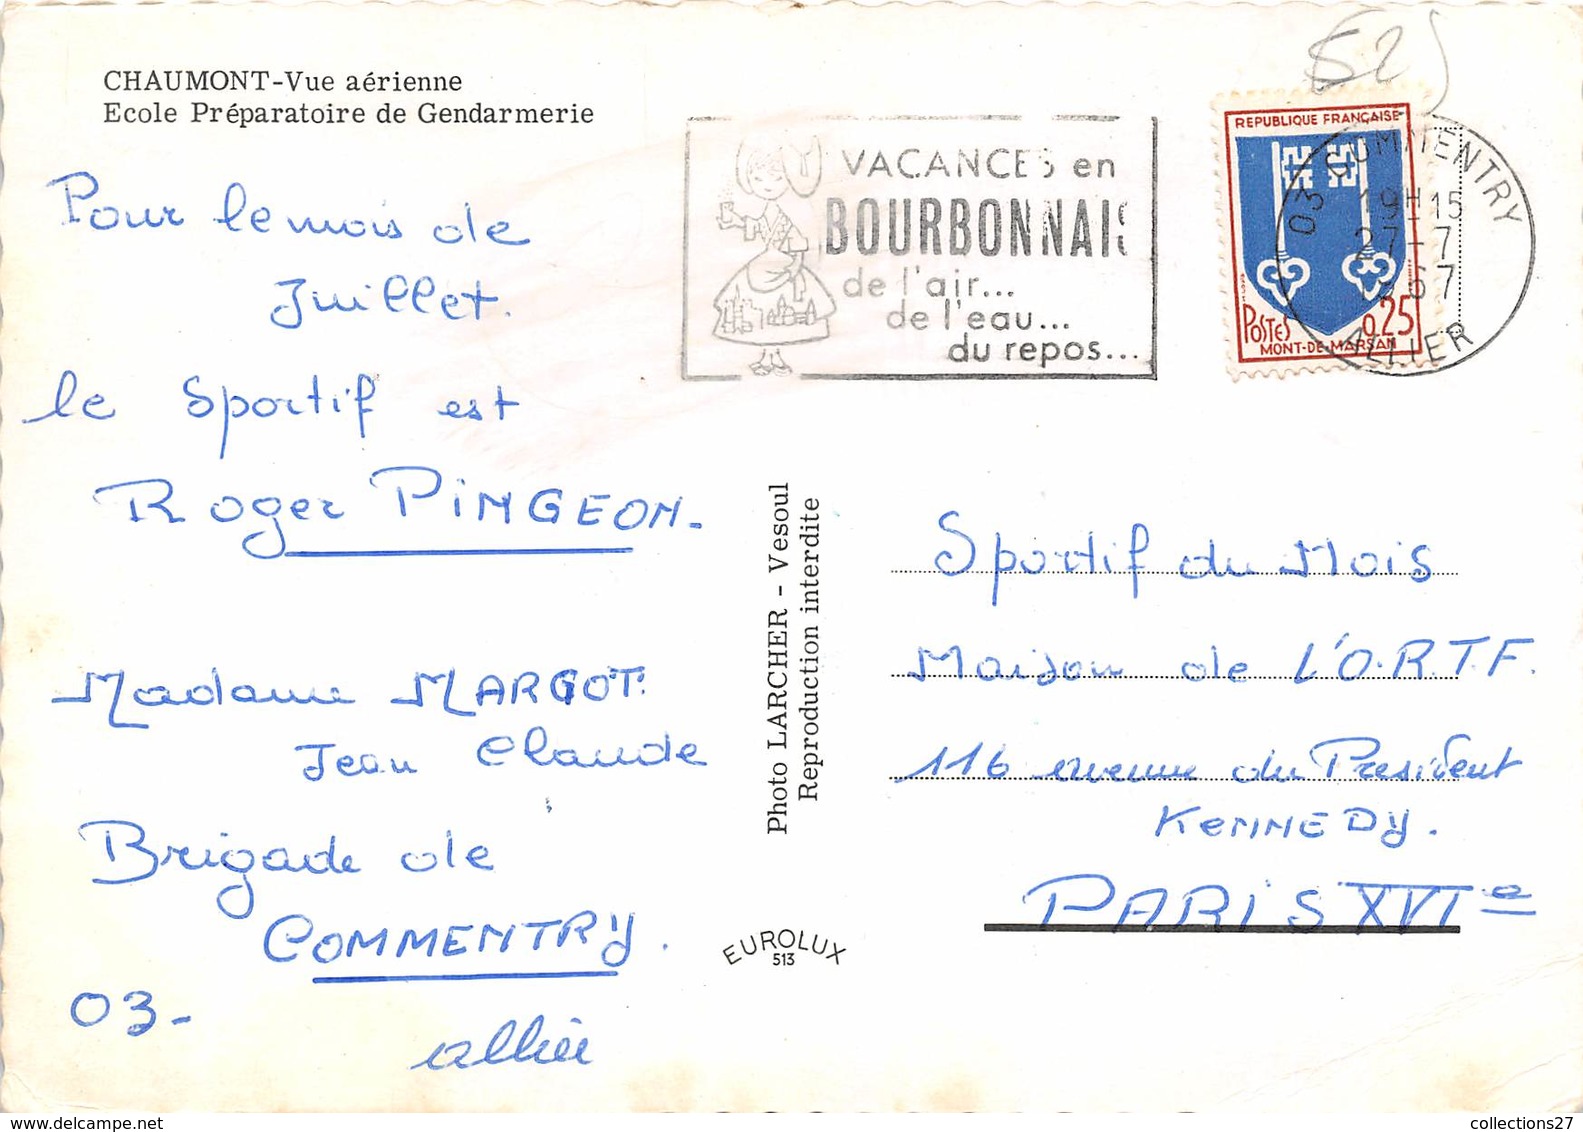 CHAUMONT-Vue aérienne
Ecole Préparatoire de Gendarmerie
Pour le mois de
Juillet.
le Sportif est
Roger PINGEON-
Madame MARGOT
Jean Claude
Brigade de
COMMENTRY.
03-
allier
VACANCES en
BOURBONNAIS
de l'air...
de l'eau...
du repos...
525
REPUBLIQUE FRANÇAISE
POSTES
0,25
MONT-DE-MARSAN
03 COMMENTRY
19H15
27-7
1967
ALLIER
Photo LARCHER - Vesoul
Reproduction interdite
EUROLUX
513
Sportif du Mois
Maison de L'O.R.T.F.
116 avenue du President
KENNEDY.
PARIS XVIe
delcampe.net
collections27